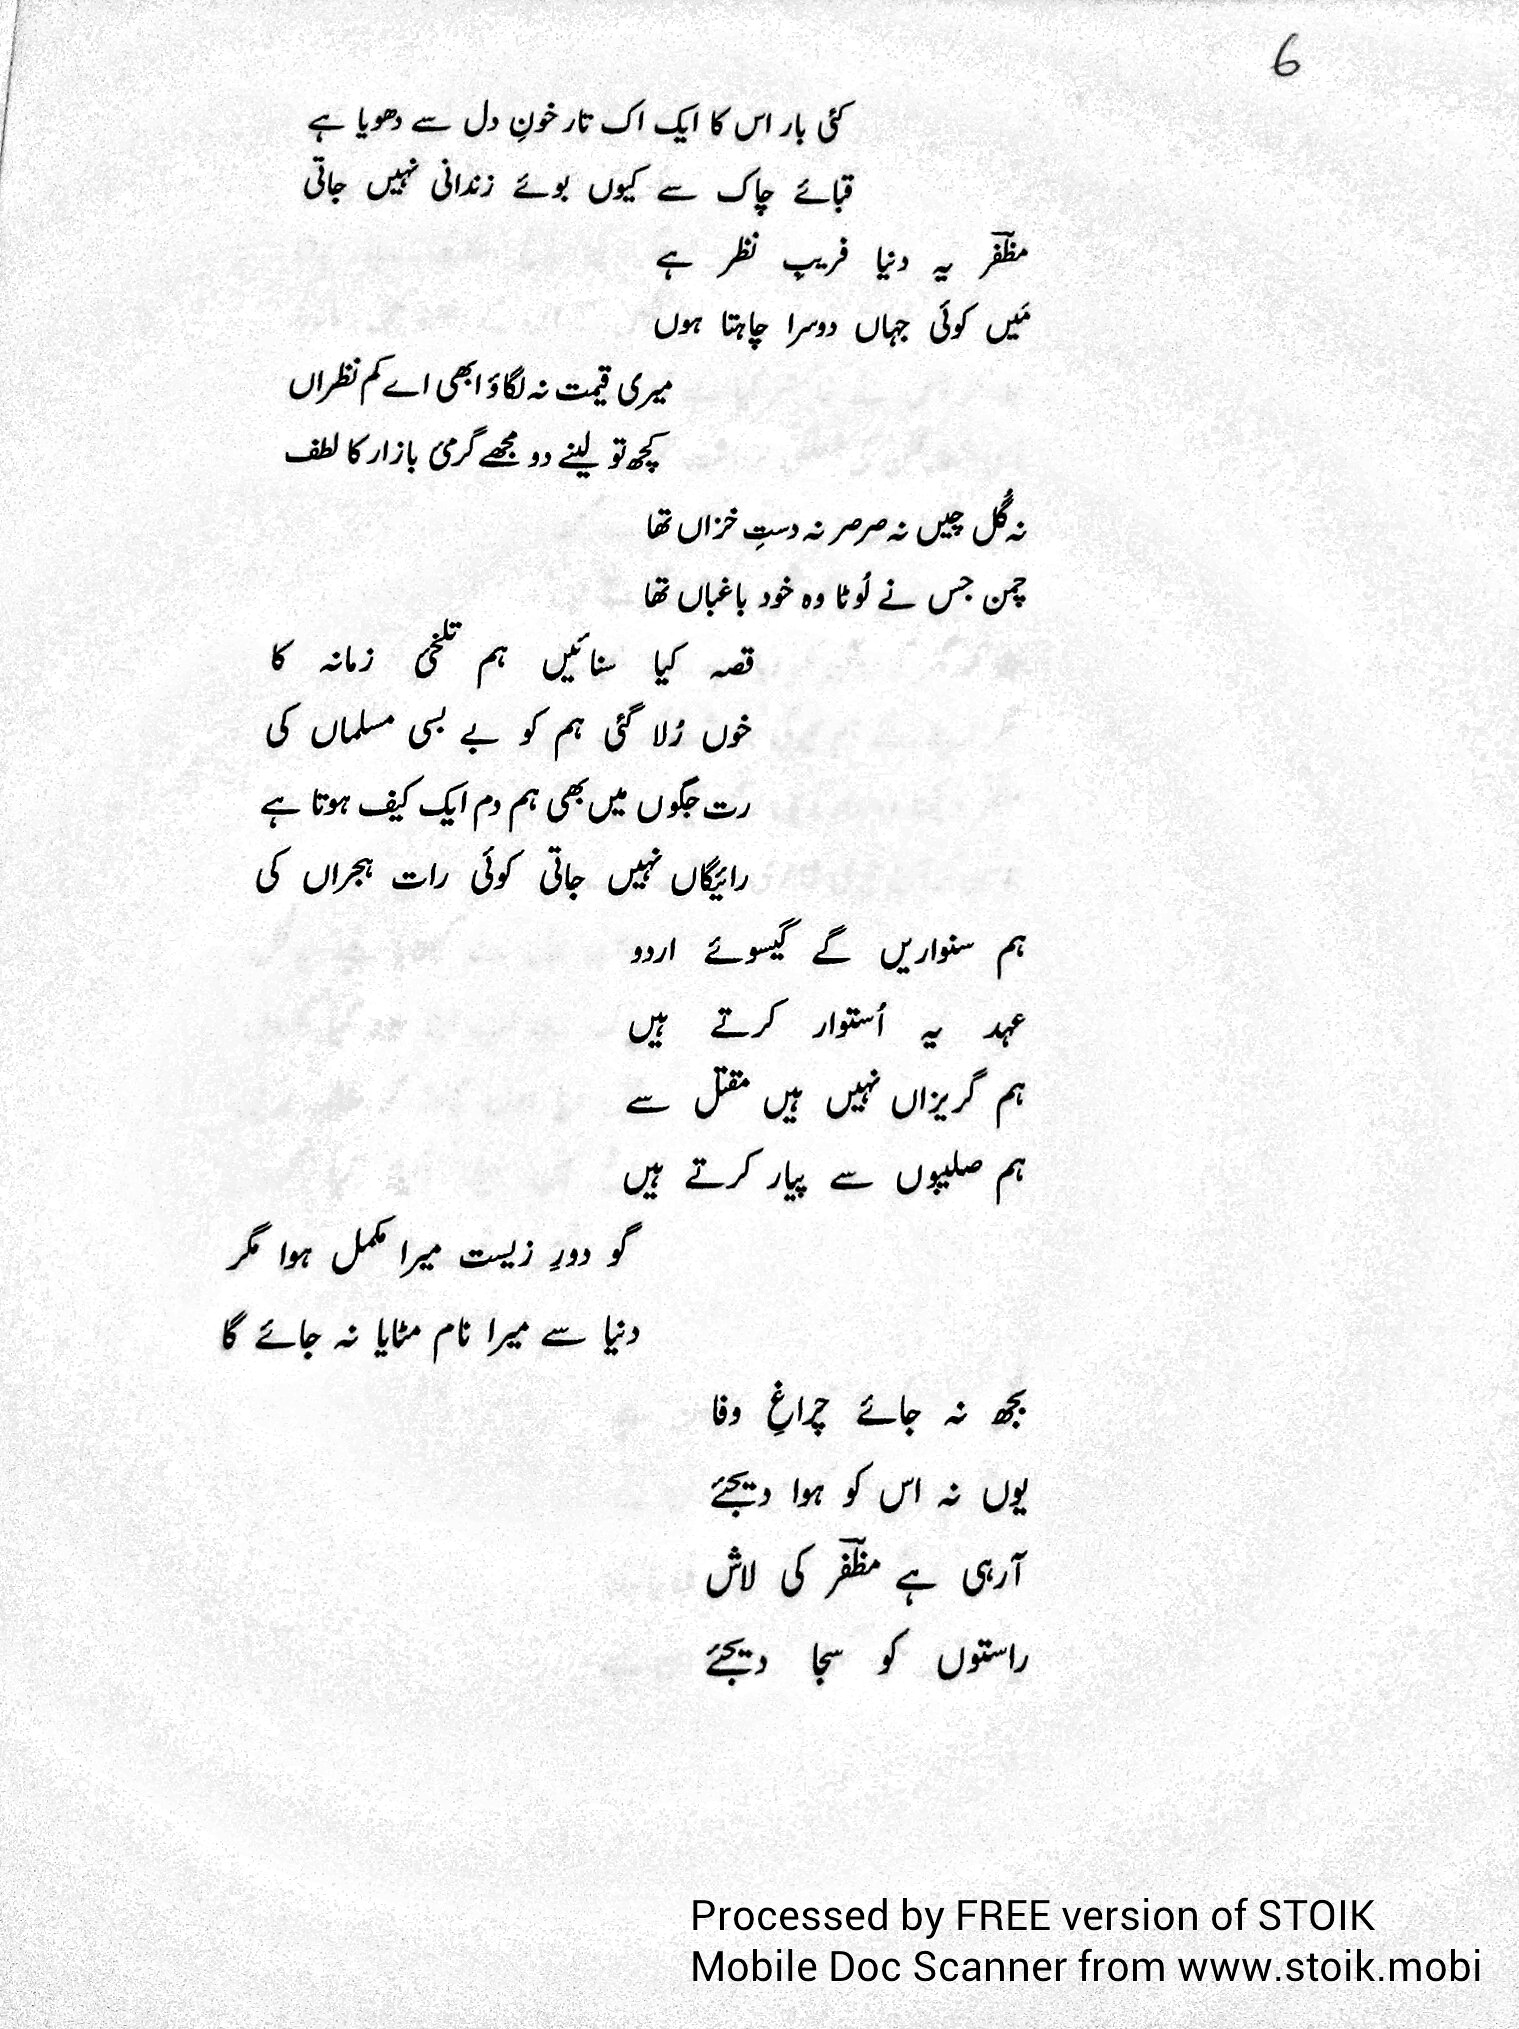 6
کئی بار اس کا ایک اک تار خونِ دل سے دھویا ہے
قبائے چاک سے کیوں بوئے زندانی نہیں جاتی
مظفرؔ یہ دنیا فریبِ نظر ہے
مَیں کوئی جہاں دوسرا چاہتا ہوں
میری قیمت نہ لگاؤ ابھی اے کم نظراں
کچھ تو لینے دو مجھے گرمیٔ بازار کا لطف
نہ گُل چیں نہ صرصر نہ دستِ خزاں تھا
چمن جس نے لُوٹا وہ خود باغباں تھا
قصہ کیا سنائیں ہم تلخیٔ زمانہ کا
خوں رُلا گئی ہم کو بے بسی مسلماں کی
رت جگوں میں بھی ہم دم ایک کیف ہوتا ہے
رائیگاں نہیں جاتی کوئی رات ہجراں کی
ہم سنواریں گے گیسوئے اردو
عہد یہ اُستوار کرتے ہیں
ہم گریزاں نہیں ہیں مقتل سے
ہم صلیبوں سے پیار کرتے ہیں
گو دورِ زیست میرا مکمل ہوا مگر
دنیا سے میرا نام مٹایا نہ جائے گا
بجھ نہ جائے چراغِ وفا
یوں نہ اس کو ہوا دیجئے
آرہی ہے مظفرؔ کی لاش
راستوں کو سجا دیجئے
Processed by FREE version of STOIK
Mobile Doc Scanner from www.stoik.mobi